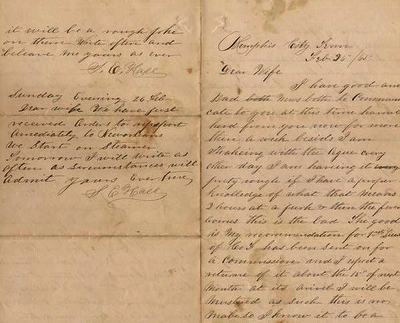 it will be a rough joke
on them Write often and
beleave me yours as ever
S. E. Hall
Sunday Evening 26 Feb
Dear wife We have just
received Orders to report
Amediately to New Orleans
We Start on Steamer
Tomorrow I will write as
often as Sircumstances will
Admit yours Ever true
S E Hall
Memphis City Tenn
Feb 25 /65
Dear Wife
I have good and
Bad both News both to Communi
cate to you at this time havent
herd from you now for more
than a week beside I am
Shaking with the Ague every
other day I am having it
pretty rough if I have a proper
Knoledge of what that means
2 hours at a and then the fever
comes this is the bad The good
is My recommendation for Lieut
of Co I has been sent on for
a Commission and I expect a
returne of it about the 15th of next
Month at its arival I will be
Mustered as such this is no
I know it to be a